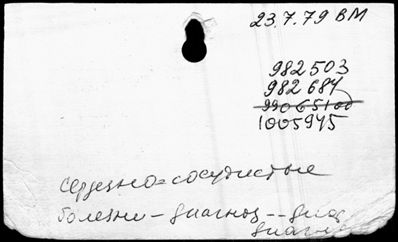 23.7.79 ВМ
982503
982684
99065100
1005945
сердечно=сосудистые
болезни - диагноз -- диаг
диагн